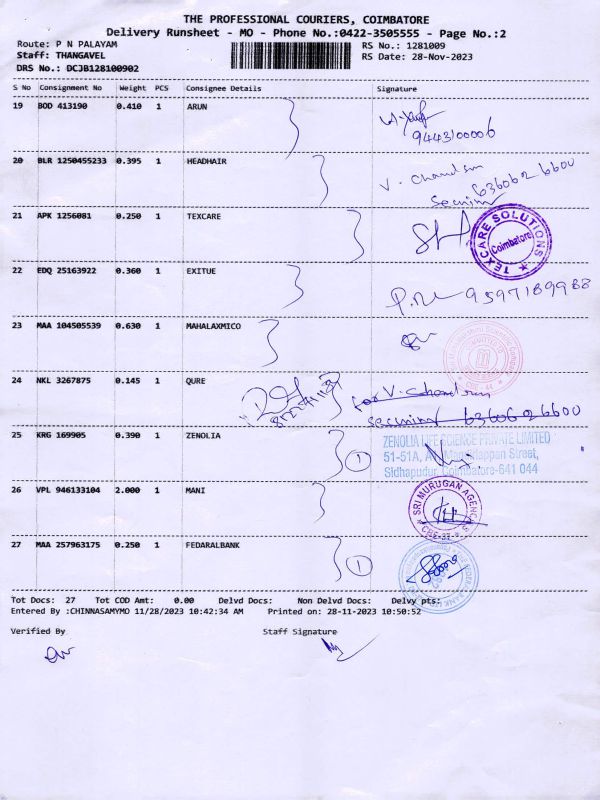 THE PROFESSIONAL COURIERS, COIMBATORE
Delivery Runsheet - MO - Phone No.:0422-3505555 - Page No.:2
Route: P N PALAYAM
RS No.: 1281009
Staff: THANGAVEL
RS Date: 28-Nov-2023
DRS No.: DCJB128100902
S No Consignment No Weight PCS Consignee Details Signature
19 BOD 413190 0.410 1 ARUN
9443100006
20 BLR 1250455233 0.395 1 HEADHAIR
V. Chandran 6360626600
21 APK 1256081 0.250 1 TEXCARE
TEXCARE SOLUTIONS
Coimbatore
22 EDQ 25163922 0.360 1 EXITUE
9597189988
23 MAA 104505539 0.630 1 MAHALAXMICO
24 NKL 3267875 0.145 1 QURE
for V. Chandran
6360626600
25 KRG 169905 0.390 1 ZENOLIA
1
ZENOLIA LIFE SCIENCE PRIVATE LIMITED
51-51A, Street,
Sidhapudur, Coimbatore-641 044
26 VPL 946133104 2.000 1 MANI
SRI MURUGAN AGENCIES
CBE-37
27 MAA 257963175 0.250 1 FEDARALBANK
1
Tot Docs: 27 Tot COD Amt: 0.00 Delvd Docs: Non Delvd Docs: Delvy pts:
Entered By :CHINNASAMYMO 11/28/2023 10:42:34 AM Printed on: 28-11-2023 10:50:52
Verified By Staff Signature